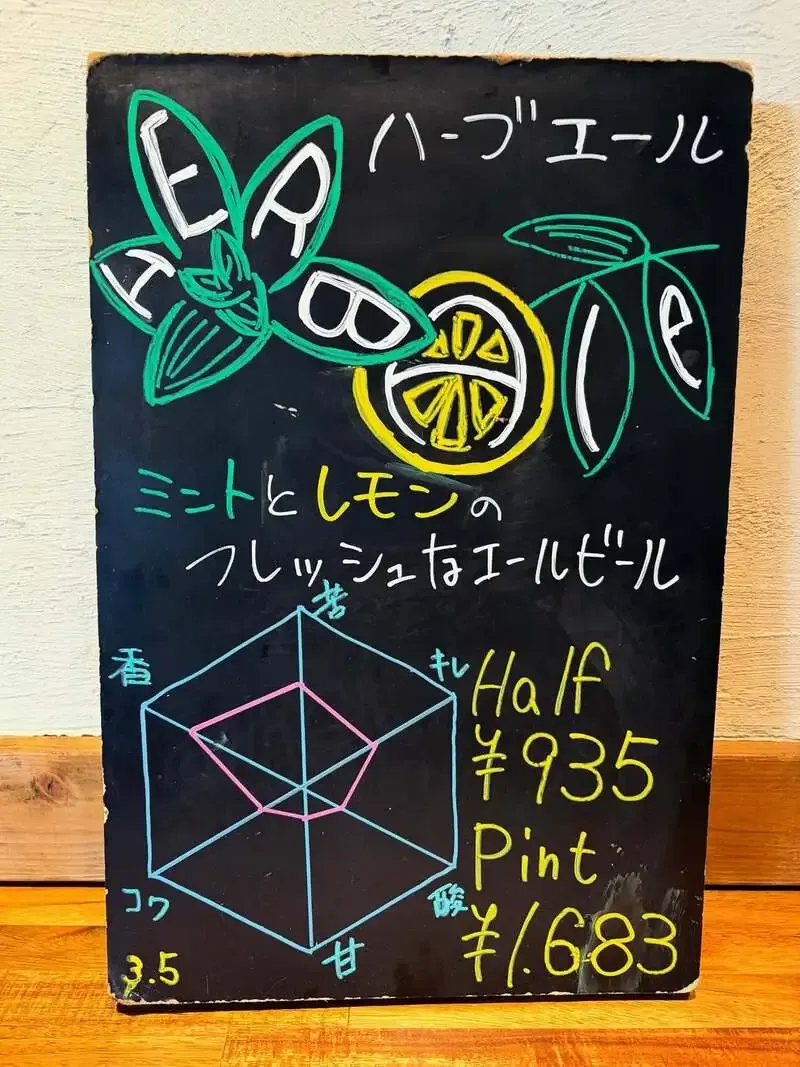 ハーブエール
HERB
Ale
ミントとレモンの
フレッシュなエールビール
苦
香
キレ
コク
酸
甘
Half
¥935
Pint
¥1.683
3.5